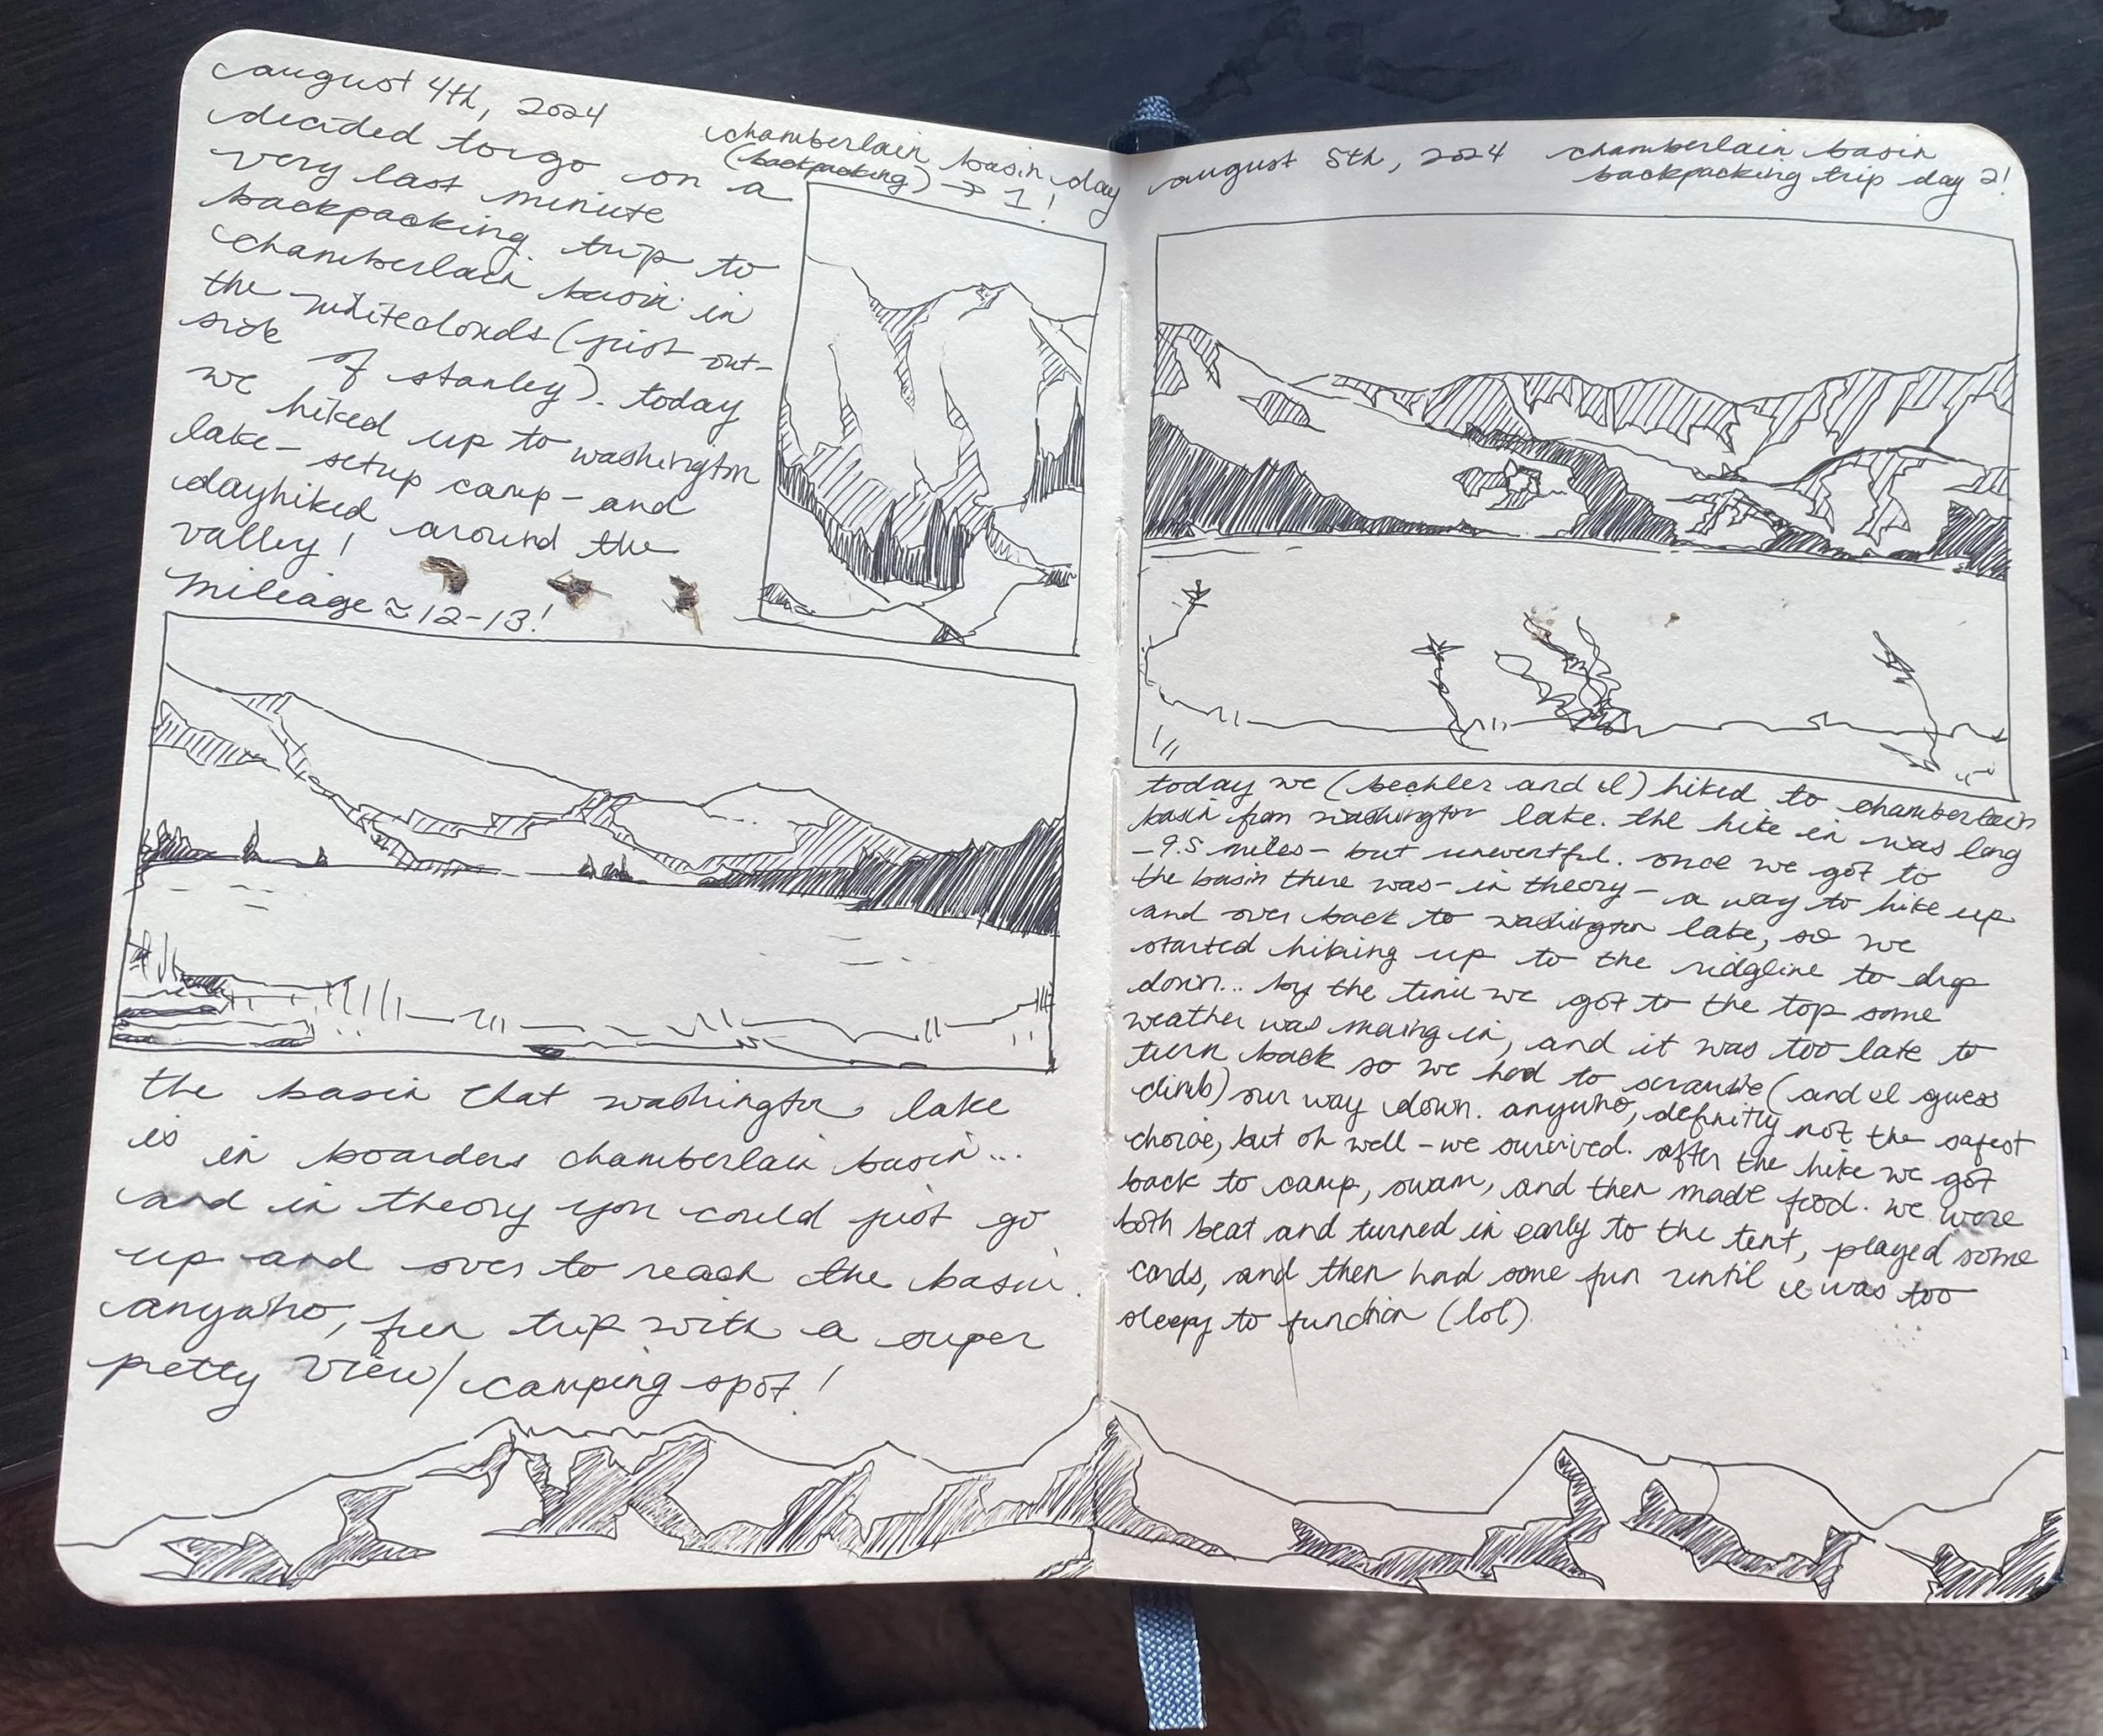 august 4th, 2024
chamberlain basin day
(backpacking) → 1!
decided to go on a
very last minute
backpacking trip to
chamberlain basin in
the whiteclouds (just out-
side of stanley). today
we hiked up to washington
lake - setup camp - and
dayhiked around the
valley!
mileage ≈ 12-13!
the basin that washington lake
is in boarders chamberlain basin...
and in theory you could just go
up and over to reach the basin.
anywho, fun trip with a super
pretty view/camping spot!
august 5th, 2024 chamberlain basin
backpacking trip day 2!
today we (bechler and I) hiked to chamberlain
basin from washington lake. the hike in was long
- 9.5 miles - but uneventful. once we got to
the basin there was - in theory - a way to hike up
and over back to washington lake, so we
started hiking up to the ridgline to drop
down... by the time we got to the top some
weather was moving in, and it was too late to
turn back so we had to scramble (and I guess
climb) our way down. anywho, definitly not the safest
choice, but oh well - we survived. after the hike we got
back to camp, swam, and then made food. we were
both beat and turned in early to the tent, played some
cards, and then had some fun until I was too
sleepy to function (lol).